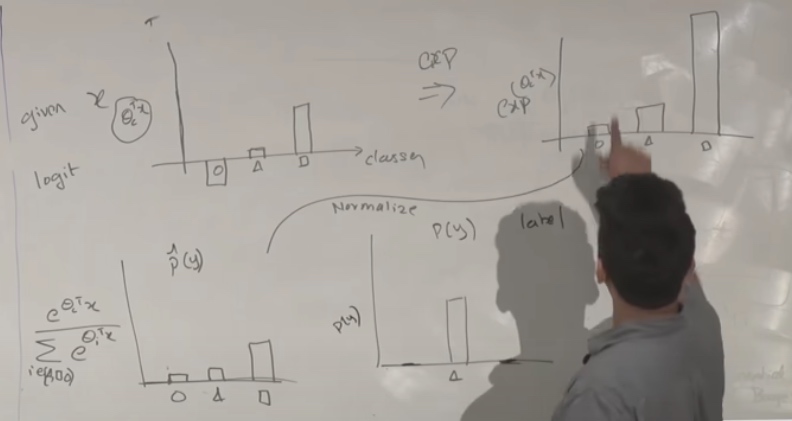 given x θ_i^T x
logit
○ △ □
classes
exp
⇒
exp(θ_i^T x)
○ △ □
Normalize
p̂(y)
e^{θ_i^T x}
∑ e^{θ_i^T x}
i∈{△□○}
○ △ □
p(y) label
p(y)
△